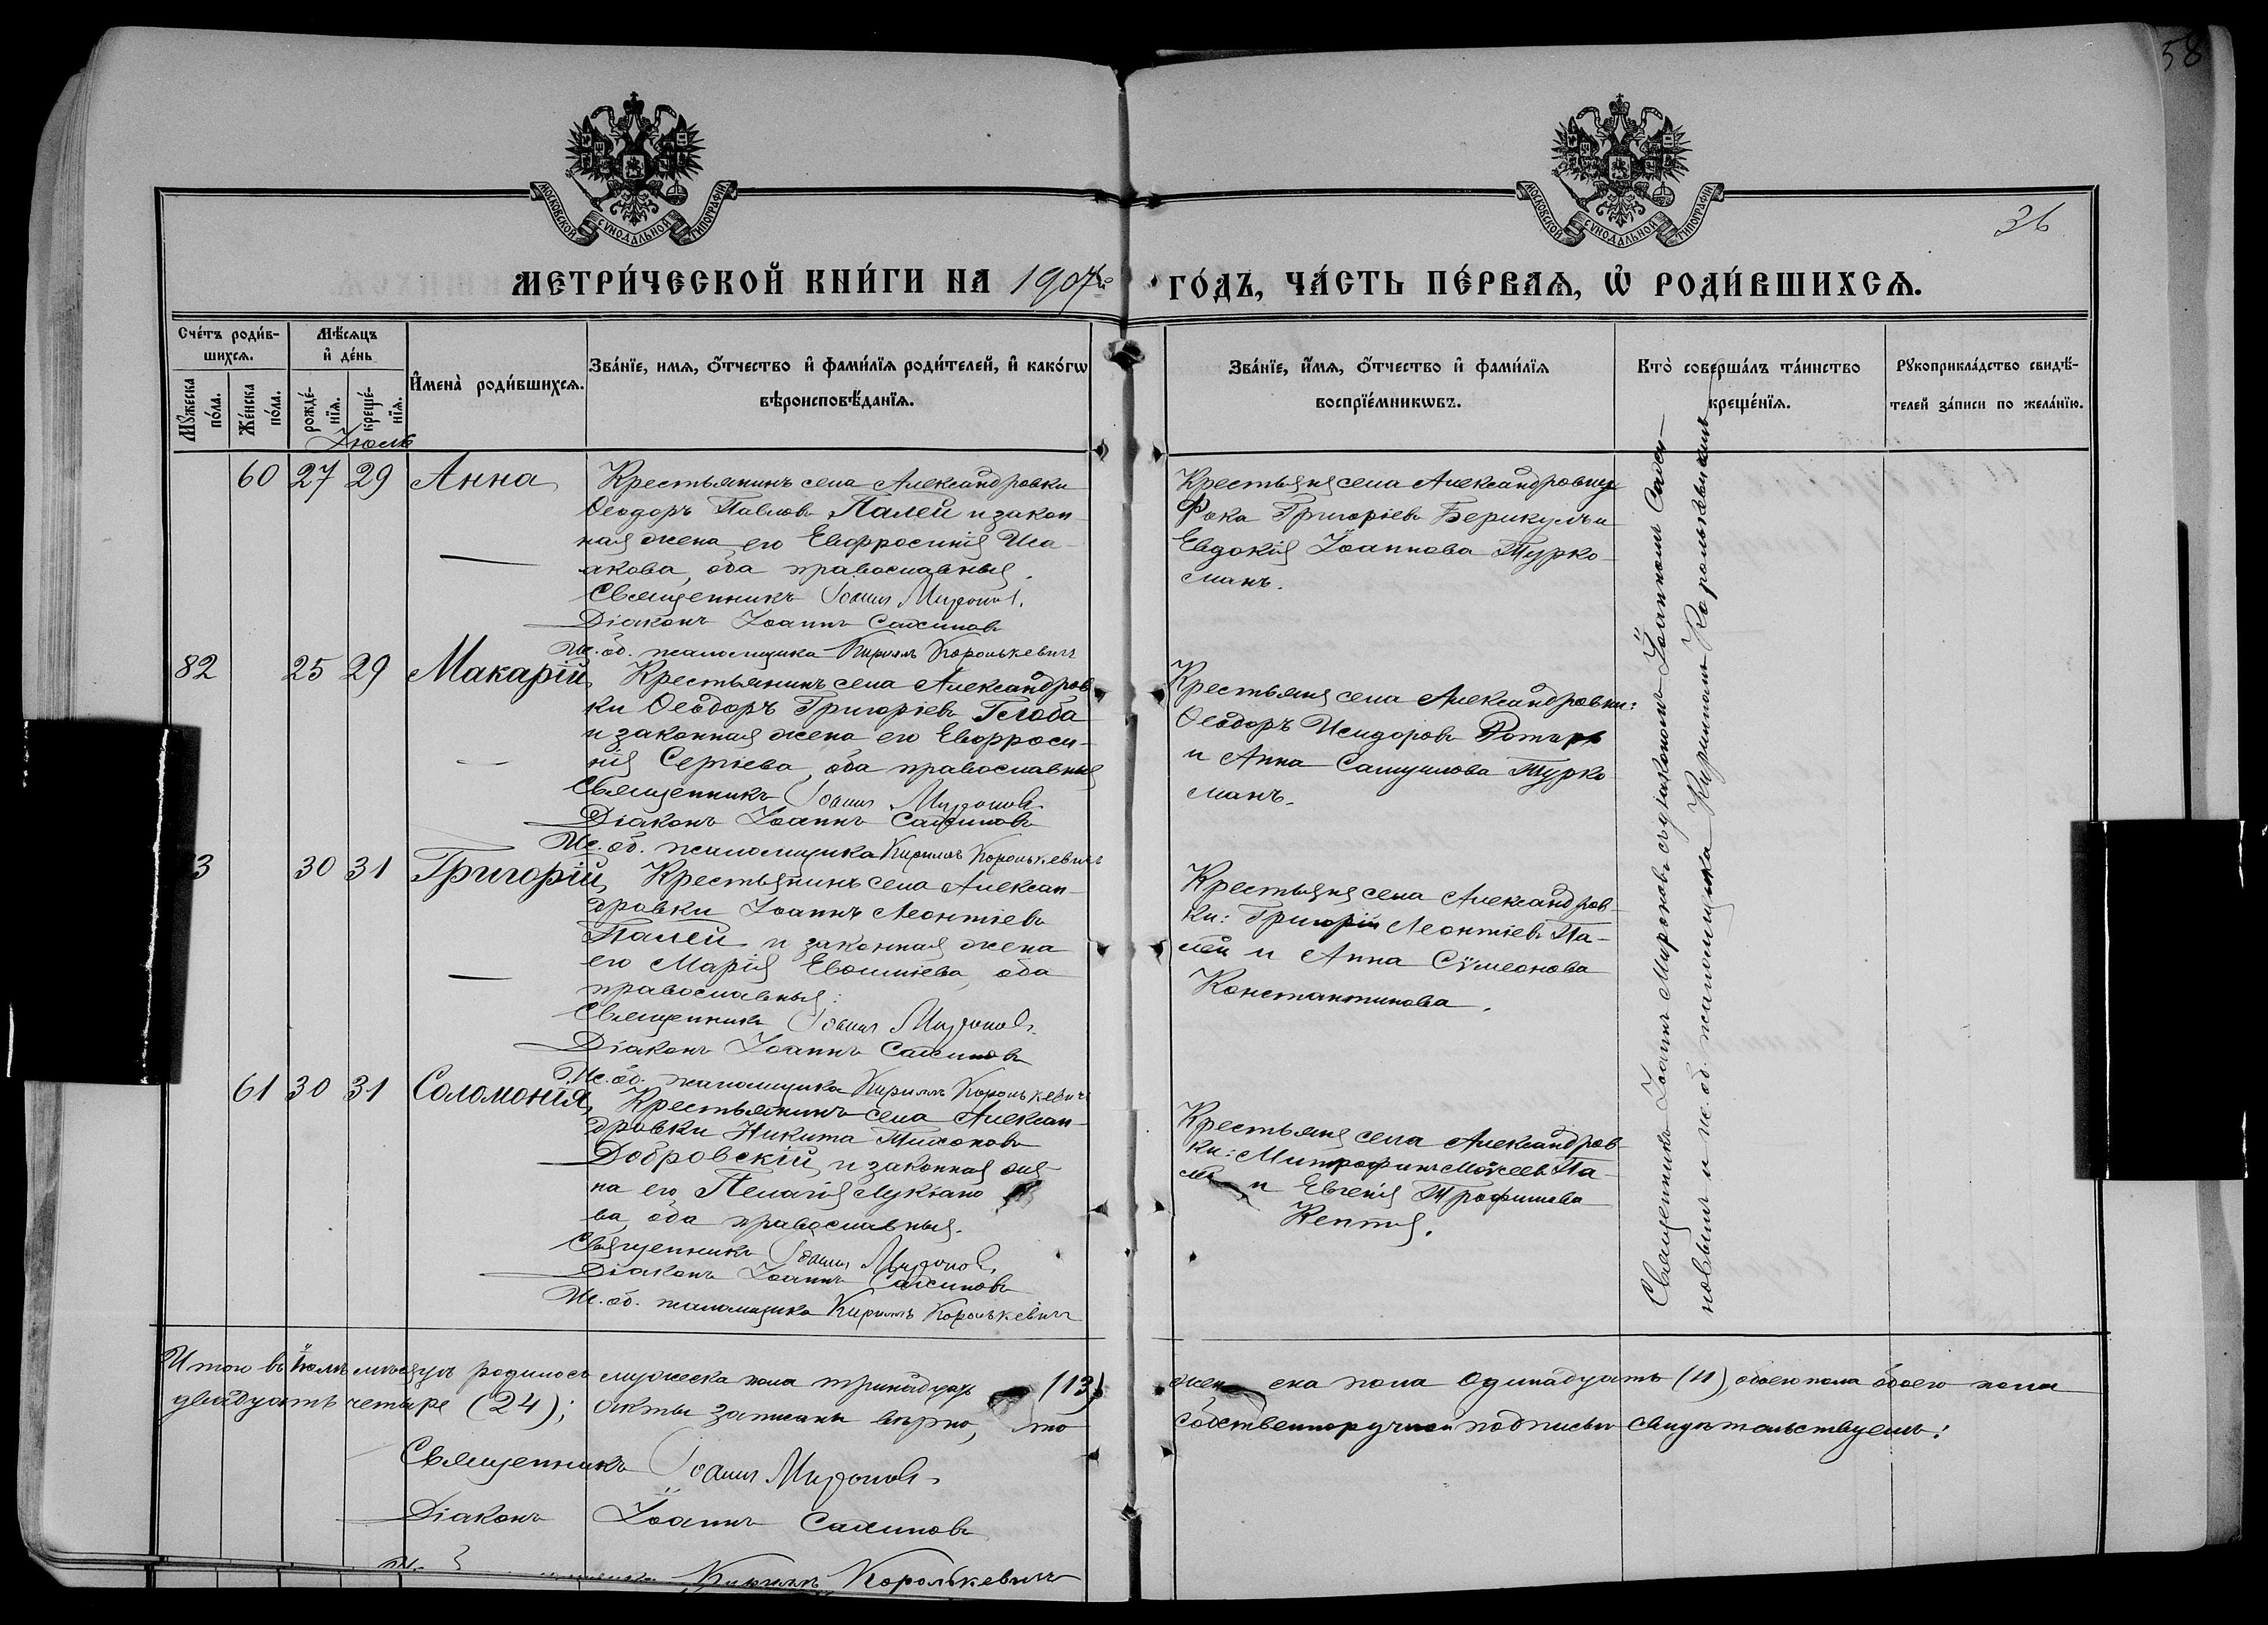 58
МОСКОВСКОЙ СѴНОДАЛЬНОЙ ТИПОГРАФІИ
МОСКОВСКОЙ СѴНОДАЛЬНОЙ ТИПОГРАФІИ
36
МЕТРИ́ЧЕСКОЙ КНИ́ГИ НА 1907й ГО́ДЪ, ЧА́СТЬ ПЕ́РВАѦ, Ѡ҆ РОДИ́ВШИХСѦ.
Сче́тъ роди́в-
шихсѧ.
Мꙋ́жеска по́ла.
Же́нска по́ла.
Мѣ́сѧцъ
и҆ де́нь
рожде́-
нїѧ.
креще́-
нїѧ.
И҆мена̀ роди́вшихсѧ.
Зва́нїе, имѧ, ѻ҆́тчество и҆ фами́лїѧ роди́телей, и҆ како́гѡ
вѣроисповѣ́данїѧ.
Зва́нїе, и҆́мѧ, ѻ҆́тчество и҆ фами́лїѧ
воспрїе́мникѡвъ.
Кто̀ соверша́лъ та́инство
креще́нїѧ.
Рꙋкоприкла́дство свидѣ́-
телей за́писи по жела́нїю.
Іюль
60 27 29 Анна
Крестьянинъ села Александровки
Ѳеодоръ Павловъ Палей и закон-
ная жена его Евфросинія Иса-
акова, оба православныя.
Священникъ Іоаннъ Мироновъ.
Діаконъ Іоаннъ Сахиновъ
Ис. об. псаломщика Кириллъ Королькевичъ
Крестьяня села Александровки
Фока Григоріевъ Берикулъ и
Евдокія Іоаннова Турко-
манъ.
82 25 29 Макарій
Крестьянинъ села Александров-
ки Ѳеодоръ Григоріевъ Глоба
и законная жена его Евфроси-
нія Сергіева, оба православныя
Священникъ Іоаннъ Мироновъ
Діаконъ Іоаннъ Сахиновъ
Ис. об. псаломщика Кириллъ Королькевичъ
Крестьяня села Александровки:
Ѳеодоръ Исидоровъ Ротарь
и Анна Самуилова Турко-
манъ.
3 30 31 Григорій
Крестьянинъ села Алексан-
дровки Іоаннъ Леонтіевъ
Палей и законная жена
его Марія Евѳиміева, оба
православныя:
Священникъ Іоаннъ Мироновъ.
Діаконъ Іоаннъ Сахиновъ
Ис. об. псаломщика Кириллъ Королькевичъ
Крестьяня села Александров-
ки: Григорій Леонтіевъ Па-
лей и Анна Сѵмеонова
Константинова.
61 30 31 Соломонія
Крестьянинъ села Алексан-
дровки Никита Тихоновъ
Добровскій и законная же-
на его Пелагія Лукіано-
ва, оба православныя.
Священникъ Іоаннъ Мироновъ.
Діаконъ Іоаннъ Сахиновъ
Ис. об. псаломщика Кириллъ Королькевичъ
Крестьяня села Александров-
ки: Митрофанъ Моѵсеевъ Па-
и Евгенія Трофимова
Кептя.
Священникъ Іоаннъ Мироновъ съ діакономъ Іоанномъ Сахи-
новымъ и ис. об. псаломщика Кирилломъ Королькевичемъ
Итого въ іюлѣ мѣсяцѣ родилось мужеска пола тринадцать (13), женска пола одинадцать (11), обоего пола обоего пола
двадцать четыре (24); акты записаны вѣрно, что собственноручной подписью свидѣтельствуемъ:
Священникъ Іоаннъ Мироновъ.
Діаконъ Іоаннъ Сахиновъ
Кириллъ Королькевичъ